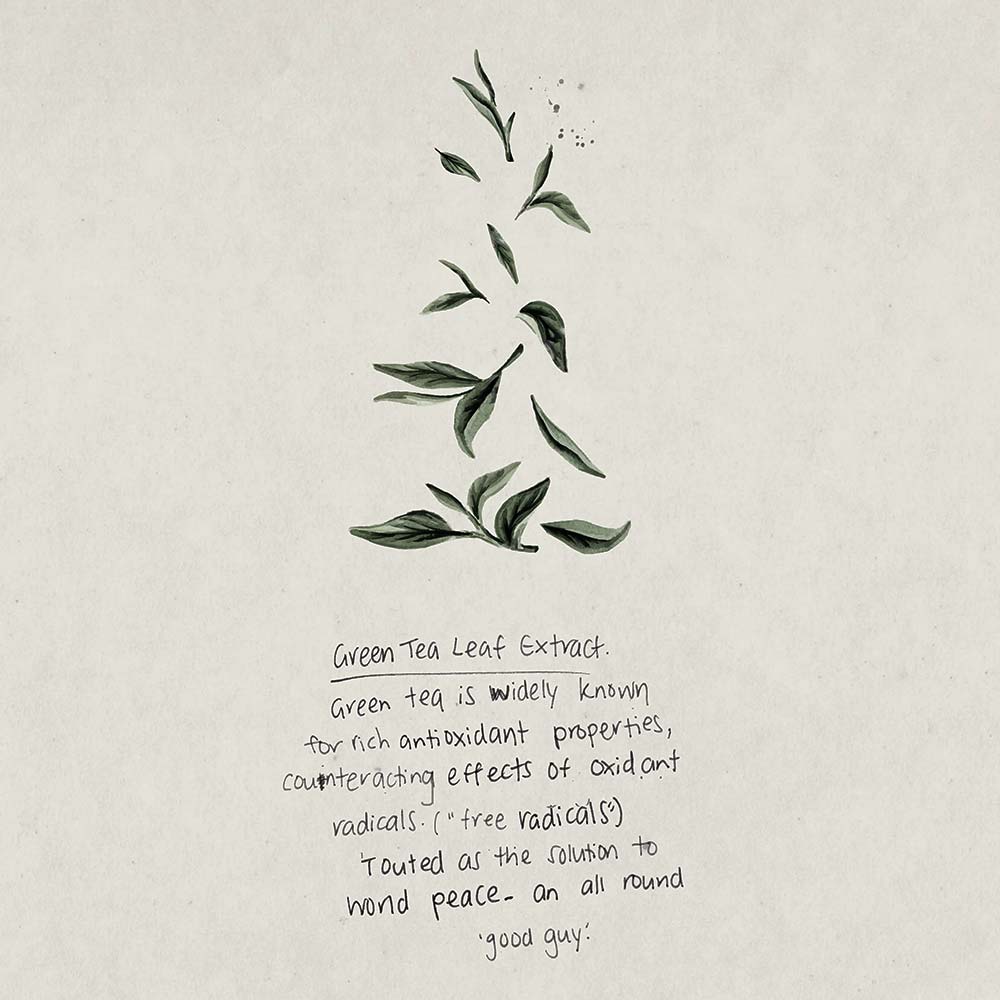 Green Tea Leaf Extract.
Green tea is widely known
for rich antioxidant properties,
counteracting effects of oxidant
radicals. ("free radicals")
Touted as the solution to
world peace - an all round
'good guy'.